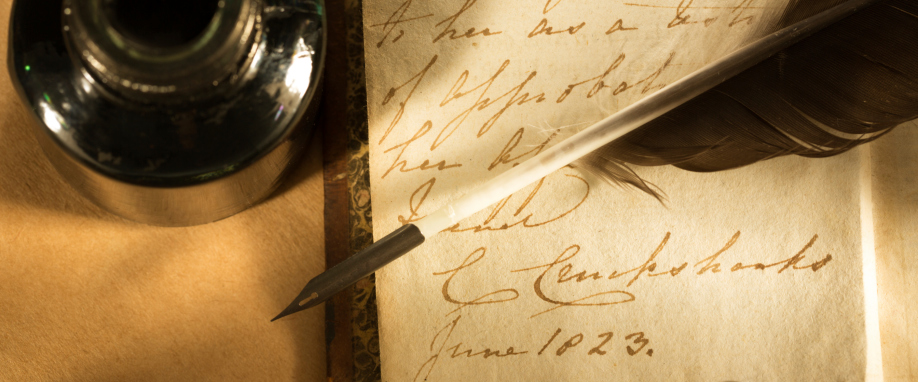 to her as a
of approbat
her
Friend
C Cruckshanks
June 1823.